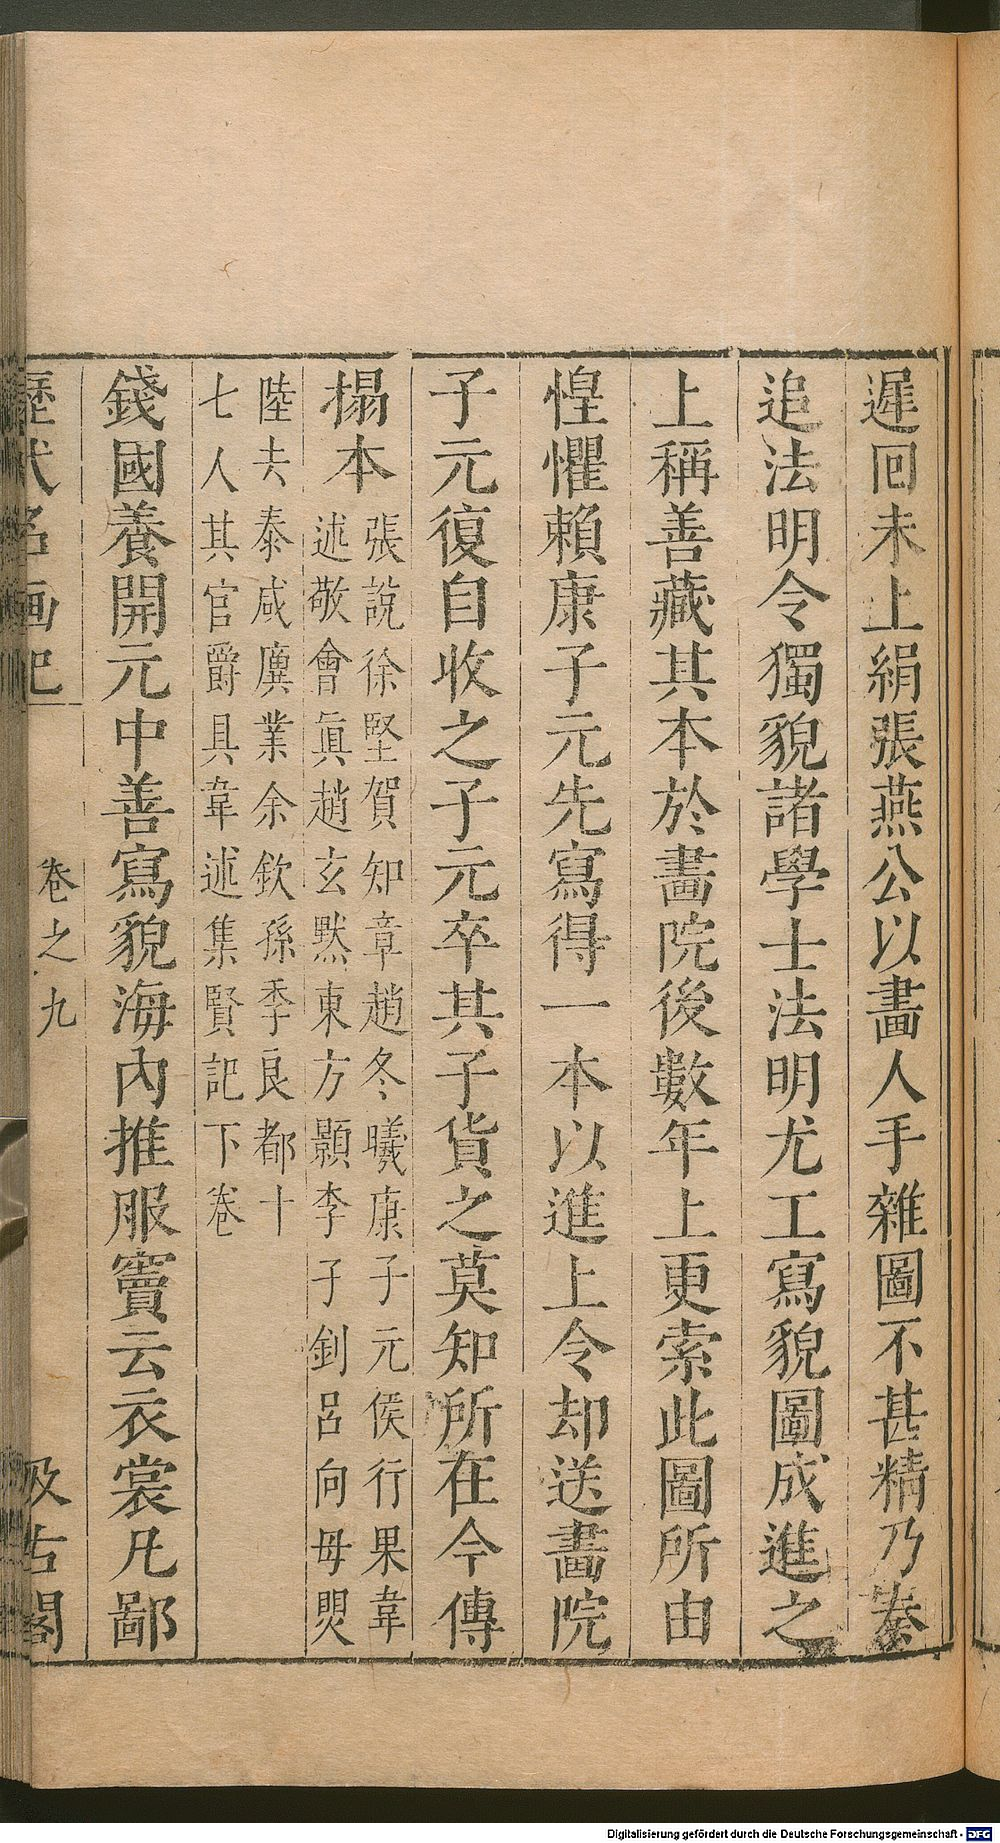 遲回未上絹張燕公以畫人手雜圖不甚精乃奏
追法明令獨貌諸學士法明尤工寫貌圖成進之
上稱善藏其本於畫院後數年上更索此圖所由
惶懼賴康子元先寫得一本以進上令却送畫院
子元復自收之子元卒其子貨之莫知所在今傳
搨本張說徐堅賀知章趙冬曦康子元侯行果韋
述敬會眞趙玄默東方顥李子釗呂向毋煚
陸去泰咸廙業余欽孫季良都十
七人其官爵具韋述集賢記下卷
錢國養開元中善寫貌海內推服竇云衣裳凡鄙
歷代名画記 卷之九 汲古閣
Digitalisierung gefördert durch die Deutsche Forschungsgemeinschaft - DFG